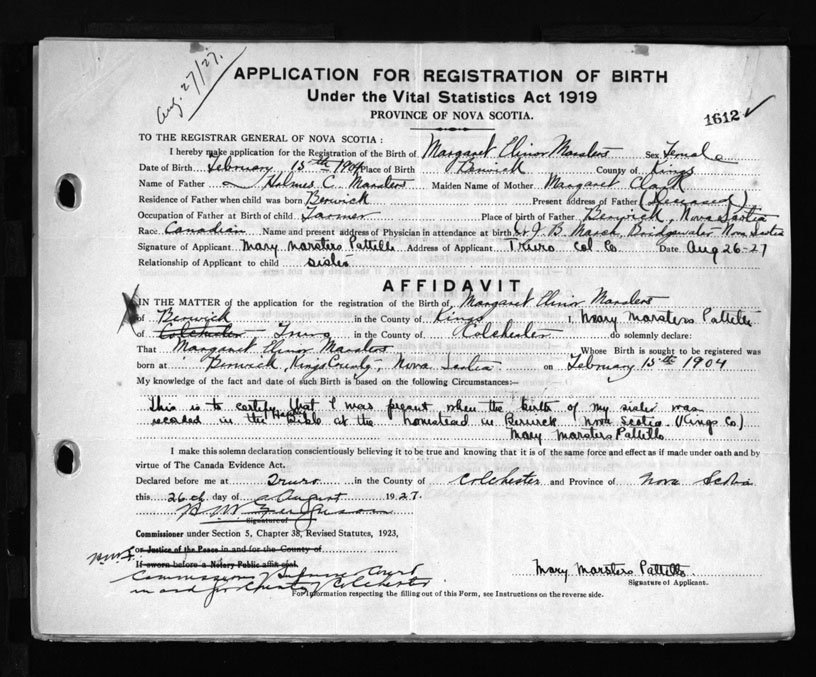 Aug. 27/27.
APPLICATION FOR REGISTRATION OF BIRTH
Under the Vital Statistics Act 1919
PROVINCE OF NOVA SCOTIA.
1612 ✓
TO THE REGISTRAR GENERAL OF NOVA SCOTIA :
I hereby make application for the Registration of the Birth of Margaret Elinor Marsters Sex Female
Date of Birth February 15th 1904 Place of Birth Berwick County of Kings
Name of Father Holmes C. Marsters Maiden Name of Mother Margaret Clark
Residence of Father when child was born Berwick Present address of Father (Deceased)
Occupation of Father at Birth of child Farmer Place of birth of Father Berwick, Nova Scotia
Race Canadian Name and present address of Physician in attendance at birth J. B. Marsh, Bridgewater Nova Scotia
Signature of Applicant Mary Marsters Pattillo Address of Applicant Truro Col. Co. Date Aug 26-27
Relationship of Applicant to child sister
AFFIDAVIT
IN THE MATTER of the application for the registration of the Birth of, Margaret Elinor Marsters
of Berwick in the County of Kings I, Mary Marsters Pattillo
of Colchester Truro in the County of Colchester do solemnly declare:
That Margaret Elinor Marsters Whose Birth is sought to be registered was
born at Berwick, Kings County, Nova Scotia on February 15th 1904
My knowledge of the fact and date of such Birth is based on the following Circumstances:—
This is to certify that I was present when the birth of my sister was
recorded in the Bible at the homestead in Berwick Nova Scotia (Kings Co.)
Mary Marsters Pattillo
I make this solemn declaration conscientiously believing it to be true and knowing that it is of the same force and effect as if made under oath and by
virtue of The Canada Evidence Act.
Declared before me at Truro in the County of Colchester and Province of Nova Scotia
this 26th day of August 1927.
Signature of
Commissioner under Section 5, Chapter 38, Revised Statutes, 1923,
or Justice of the Peace in and for the County of
If sworn before a Notary Public affix seal
Commissioner Supreme Court
in and for County Colchester
Mary Marsters Pattillo
Signature of Applicant.
For Information respecting the filling out of this Form, see Instructions on the reverse side.